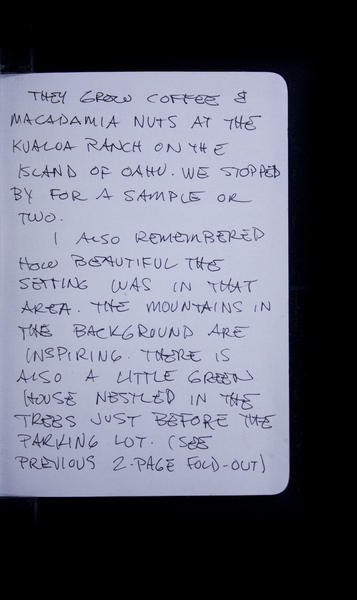 THEY GROW COFFEE &
MACADAMIA NUTS AT THE
KUALOA RANCH ON THE
ISLAND OF OAHU. WE STOPPED
BY FOR A SAMPLE OR
TWO.
I ALSO REMEMBERED
HOW BEAUTIFUL THE
SETTING WAS IN THAT
AREA. THE MOUNTAINS IN
THE BACKGROUND ARE
INSPIRING. THERE IS
ALSO A LITTLE GREEN
HOUSE NESTLED IN THE
TREES JUST BEFORE THE
PARKING LOT. (SEE
PREVIOUS 2-PAGE FOLD-OUT)